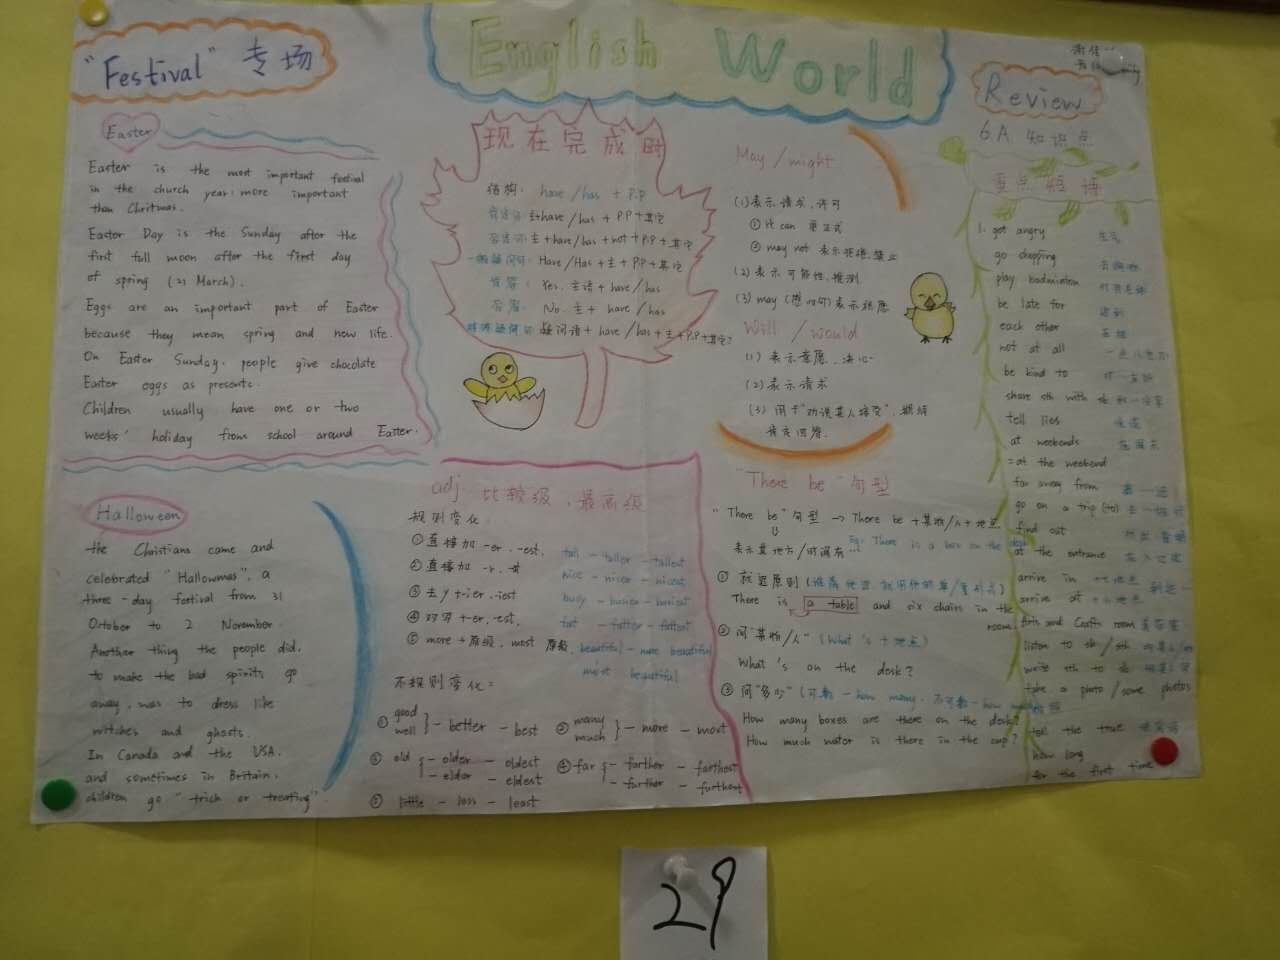 "Festival" 专场
English World
Review
6A 知识点
重点短语
Easter
Easter is the most important festival
in the church year: more important
than Chritmas.
Easter Day is the Sunday after the
first full moon after the first day
of spring (21 March).
Eggs are an important part of Easter
because they mean spring and new life.
On Easter Sunday, people give chocolate
Easter eggs as presents.
Children usually have one or two
weeks' holiday from school around Easter.
Halloween
the Christians came and
celebrated "Hallowmas", a
three-day festival from 31
October to 2 November.
Another thing the people did,
to make the bad spirits go
away, was to dress like
witches and ghosts.
In Canada and the USA,
and sometimes in Britain,
children go "trick or treating".
现在完成时
结构: have/has + P.P
肯定句: 主+have/has + P.P+其它
否定句: 主+have/has+not+P.P+其它
一般疑问句: Have/Has+主+P.P+其它
肯答: Yes, 主语 + have/has
否答: No, 主+ have/has
特殊疑问句: 疑问词+ have/has+主+P.P+其它?
May/might
(1)表示请求、许可
① 比 can 更正式
② may not 表示拒绝、禁止
(2)表示可能性、推测
(3) may 表示祝愿
Will/would
(1) 表示意愿、决心
(2)表示请求
(3) 用于"劝说某人接受",期待
肯定回答.
adj. 比较级、最高级
规则变化:
①直接加-er、-est, tall - taller - tallest
②直接加-r、-st nice - nicer - nicest
③去y+-ier、-iest busy - busier - busiest
④双写+-er、-est, fat - fatter - fattest
⑤more+原级, most 原级, beautiful - more beautiful
most beautiful
不规则变化:
① good well } - better - best
② many much } - more - most
③ old { - older - oldest
- elder - eldest
④ far { - farther - farthest
- further - furthest
⑤ little - less - least
"There be" 句型
"There be"句型 → There be +某物/人+地点
表示某地方/时间有… Eg: There is a box on the desk
① 就近原则
There is a table and six chairs in the
room.
② 问"某物/人" (What's + 地点)
What's on the desk?
③ 问"多少" (可数 - how many, 不可数 - how much)
How many boxes are there on the desk?
How much water is there in the cup?
1. get angry 生气
go shopping 去购物
play badminton 打羽毛球
be late for 迟到
each other 互相
not at all 一点儿也不
be kind to
share sth with sb
tell lies 说谎
at weekends 在周末
=at the weekend
far away from
go on a trip (to)
find out
at the entrance 在入口处
arrive in +地点 到达
arrive at +地点
Arts and Crafts room 美劳室
listen to sb/sth
write sth to sb
take a photo/some photos
tell the true 说实话
how long
for the first time
29